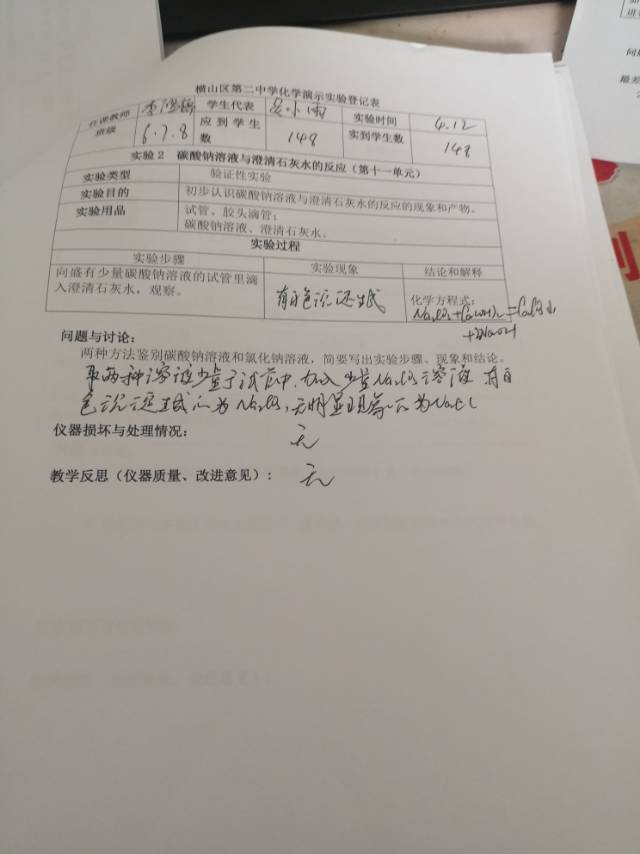 横山区第二中学化学演示实验登记表
任课教师 李 学生代表 吴小雨 实验时间 4.12
班级 6.7.8 应到学生数 148 实到学生数 148
实验2 碳酸钠溶液与澄清石灰水的反应（第十一单元）
实验类型 验证性实验
实验目的 初步认识碳酸钠溶液与澄清石灰水的反应的现象和产物。
实验用品 试管、胶头滴管；
碳酸钠溶液、澄清石灰水。
实验过程
实验步骤 实验现象 结论和解释
向盛有少量碳酸钠溶液的试管里滴入澄清石灰水，观察。
有白色沉淀生成
化学方程式：
Na2CO3+Ca(OH)2=CaCO3↓
+2NaOH
问题与讨论：
两种方法鉴别碳酸钠溶液和氯化钠溶液，简要写出实验步骤、现象和结论。
取两种溶液少量于试管中，加入少量 溶液 有白
色沉淀生成的为Na2CO3，无明显现象的为NaCl
仪器损坏与处理情况： 无
教学反思（仪器质量、改进意见）： 无